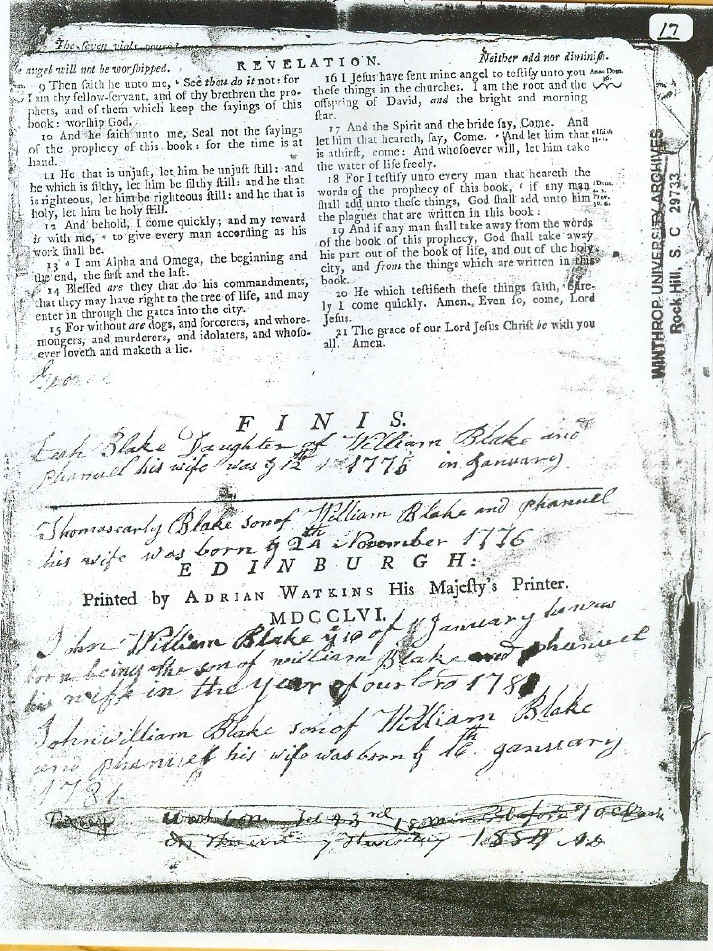 17
The seven vials
REVELATION.
Neither add nor diminish.
angel will not be worshipped.
9 Then saith he unto me, See thou do it not: for
I am thy fellow-servant, and of thy brethren the pro-
phets, and of them which keep the sayings of this
book: worship God.
10 And he saith unto me, Seal not the sayings
of the prophecy of this book: for the time is at
hand.
11 He that is unjust, let him be unjust still: and
he which is filthy, let him be filthy still: and he that
is righteous, let him be righteous still: and he that is
holy, let him be holy still.
12 And behold, I come quickly; and my reward
is with me, to give every man according as his
work shall be.
13 I am Alpha and Omega, the beginning and
the end, the first and the last.
14 Blessed are they that do his commandments,
that they may have right to the tree of life, and may
enter in through the gates into the city.
15 For without are dogs, and sorcerers, and whore-
mongers, and murderers, and idolaters, and whoso-
ever loveth and maketh a lie.
16 I Jesus have sent mine angel to testify unto you
these things in the churches. I am the root and the
offspring of David, and the bright and morning
star.
17 And the Spirit and the bride say, Come. And
let him that heareth, say, Come. And let him that
is athirst, come: And whosoever will, let him take
the water of life freely.
18 For I testify unto every man that heareth the
words of the prophecy of this book, if any man
shall add unto these things, God shall add unto him
the plagues that are written in this book:
19 And if any man shall take away from the words
of the book of this prophecy, God shall take away
his part out of the book of life, and out of the holy
city, and from the things which are written in this
book.
20 He which testifieth these things saith, Sure-
ly I come quickly. Amen. Even so, come, Lord
Jesus.
21 The grace of our Lord Jesus Christ be with you
all. Amen.
WINTHROP UNIVERSITY ARCHIVES
Rock Hill, S C 29733
FINIS.
Blake Daughter of William Blake and
phanuel his wife was y 12th 1775 in January
Thomascarly Blake son of William Blake and phanuel
his wife was born y 24th November 1776
EDINBURGH:
Printed by ADRIAN WATKINS His Majesty's Printer.
MDCCLVI.
John William Blake y 16 of January was
born being the son of william Blake and phanuel
his wife in the year of our lord 1781
John william Blake son of William Blake
and phanuel his wife was born y 16th January
1781
was born
1884 AD